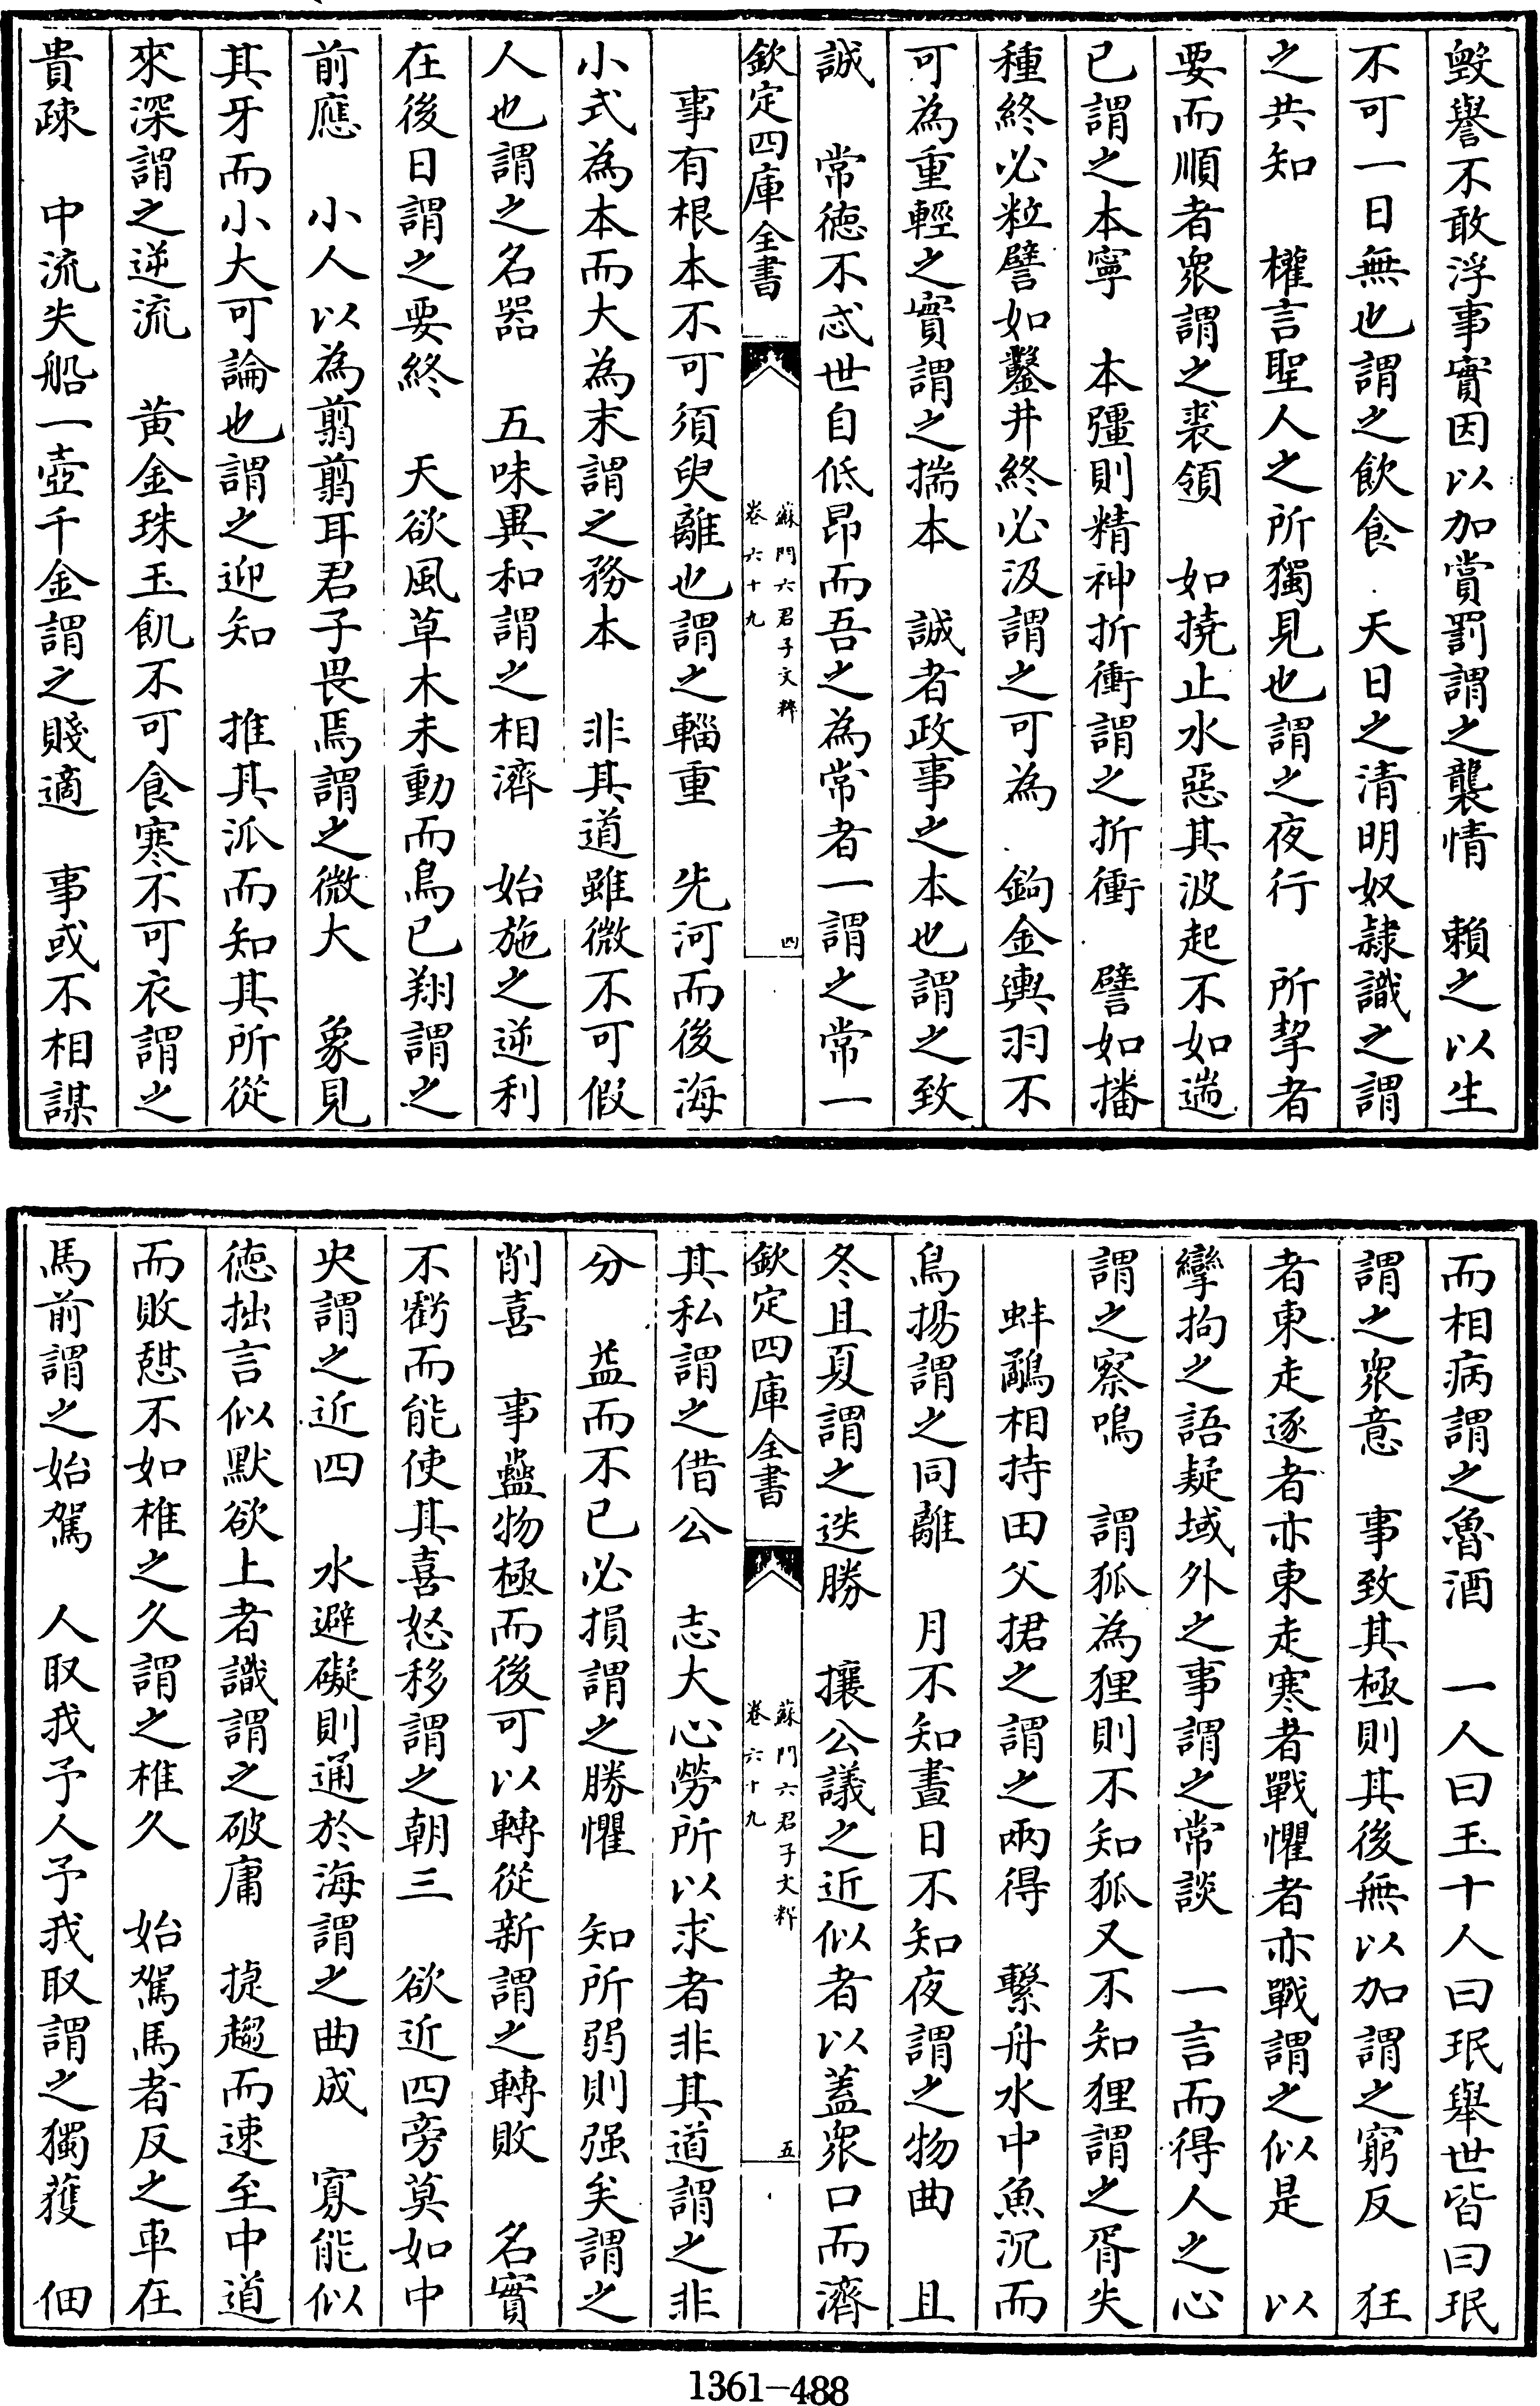 毀譽不敢浮事實因以加賞罰謂之襲情　賴之以生
不可一日無也謂之飲食　天日之清明奴隸識之謂
之共知　權言聖人之所獨見也謂之夜行　所挈者
要而順者衆謂之裘領　如撓止水惡其波起不如遄
已謂之本寧　本彊則精神折衝謂之折衝　譬如播
種終必粒譬如鑿井終必汲謂之可為　鉤金輿羽不
可為重輕之實謂之揣本　誠者政事之本也謂之致
誠　常德不忒世自低昂而吾之為常者一謂之常一
欽定四庫全書
蘇門六君子文粹
卷六十九
四
事有根本不可須臾離也謂之輜重　先河而後海
小式為本而大為末謂之務本　非其道雖微不可假
人也謂之名器　五味異和謂之相濟　始施之逆利
在後日謂之要終　天欲風草木未動而鳥已翔謂之
前應　小人以為翦翦耳君子畏焉謂之微大　象見
其牙而小大可論也謂之迎知　推其派而知其所從
來深謂之逆流　黄金珠玉飢不可食寒不可衣謂之
貴疎　中流失船一壺千金謂之賤適　事或不相謀
而相病謂之魯酒　一人曰玉十人曰珉舉世皆曰珉
謂之衆意　事致其極則其後無以加謂之窮反　狂
者東走逐者亦東走寒者戰懼者亦戰謂之似是　以
攣拘之語疑域外之事謂之常談　一言而得人之心
謂之察鳴　謂狐為狸則不知狐又不知狸謂之胥失
蚌鷸相持田父捃之謂之兩得　繫舟水中魚沉而
鳥揚謂之同離　月不知晝日不知夜謂之物曲　且
冬且夏謂之迭勝　攘公議之近似者以蓋衆口而濟
欽定四庫全書
蘇門六君子文粹
卷六十九
五
其私謂之借公　志大心勞所以求者非其道謂之非
分　益而不已必損謂之勝懼　知所弱則强矣謂之
削喜　事蠱物極而後可以轉從新謂之轉敗　名實
不虧而能使其喜怒移謂之朝三　欲近四旁莫如中
央謂之近四　水避礙則通於海謂之曲成　寡能似
德拙言似默欲上者識謂之破庸　捷趨而速至中道
而敗惎不如椎之久謂之椎久　始駕馬者反之車在
馬前謂之始駕　人取我予人予我取謂之獨獲　佃
1361-488